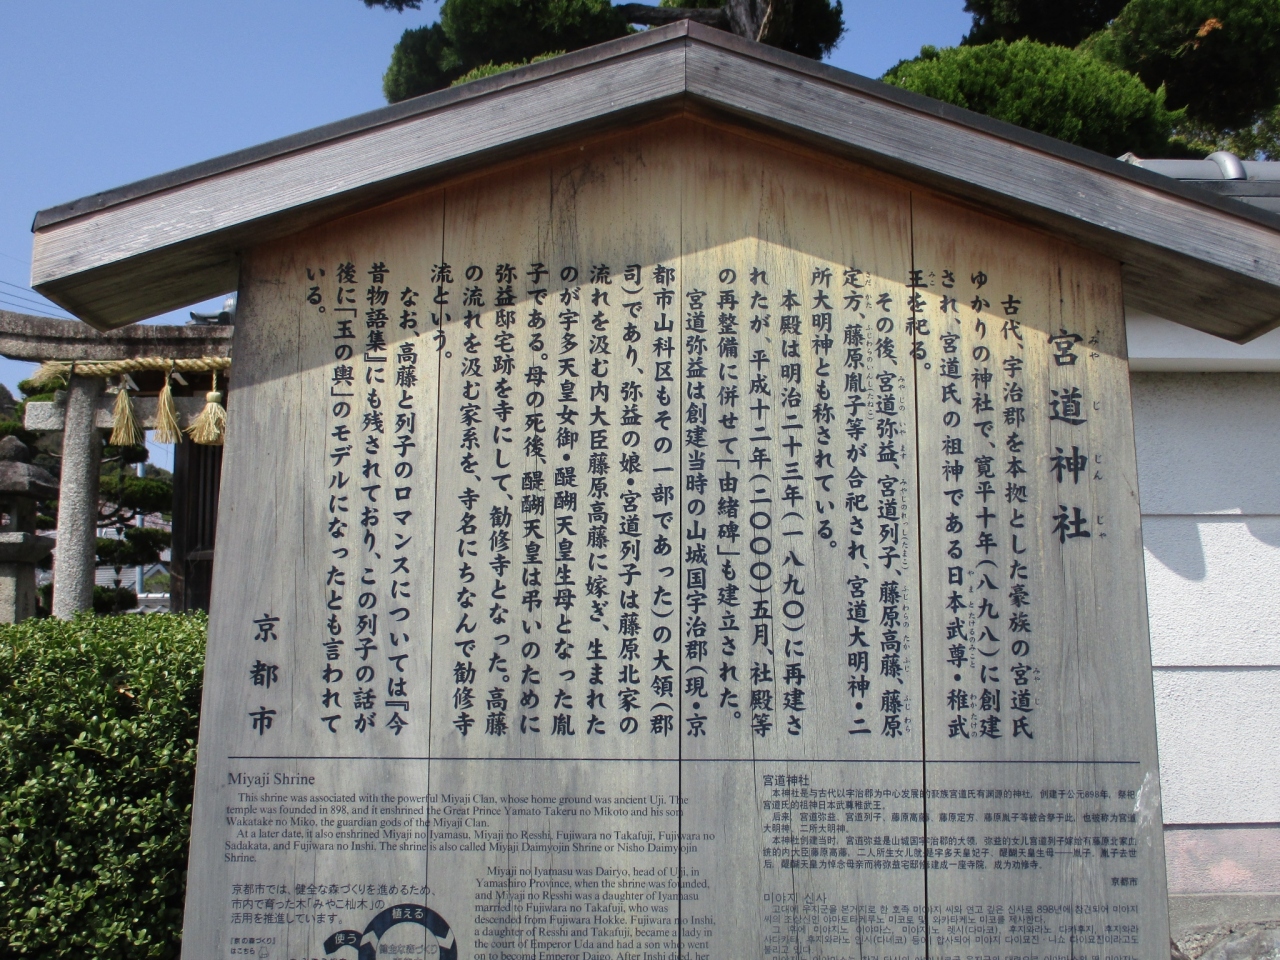 宮道神社
古代、宇治郡を本拠とした豪族の宮道氏
ゆかりの神社で、寛平十年(八九八)に創建
され、宮道氏の祖神である日本武尊・稚武
王を祀る。
その後、宮道弥益、宮道列子、藤原高藤、藤原
定方、藤原胤子等が合祀され、宮道大明神・二
所大明神とも称されている。
本殿は明治二十三年(一八九〇)に再建さ
れたが、平成十二年(二〇〇〇)五月、社殿等
の再整備に併せて「由緒碑」も建立された。
宮道弥益は創建当時の山城国宇治郡(現・京
都市山科区もその一部であった)の大領(郡
司)であり、弥益の娘・宮道列子は藤原北家の
流れを汲む内大臣藤原高藤に嫁ぎ、生まれた
のが宇多天皇女御・醍醐天皇生母となった胤
子である。母の死後、醍醐天皇は弔いのために
弥益邸宅跡を寺にして、勧修寺となった。高藤
の流れを汲む家系を、寺名にちなんで勧修寺
流という。
なお、高藤と列子のロマンスについては『今
昔物語集』にも残されており、この列子の話が
後に「玉の輿」のモデルになったとも言われて
いる。
京都市
Miyaji Shrine
This shrine was associated with the powerful Miyaji Clan, whose home ground was ancient Uji. The
temple was founded in 898, and it enshrined the Great Prince Yamato Takeru no Mikoto and his son
Wakatake no Miko, the guardian gods of the Miyaji Clan.
At a later date, it also enshrined Miyaji no Iyamasu, Miyaji no Resshi, Fujiwara no Takafuji, Fujiwara no
Sadakata, and Fujiwara no Inshi. The shrine is also called Miyaji Daimyojin Shrine or Nisho Daimyojin
Shrine.
Miyaji no Iyamasu was Dairyo, head of Uji, in
Yamashiro Province, when the shrine was founded,
and Miyaji no Resshi was a daughter of Iyamasu
married to Fujiwara no Takafuji, who was
descended from Fujiwara Hokke. Fujiwara no Inshi,
a daughter of Resshi and Takafuji, became a lady in
the court of Emperor Uda and had a son who went
on to become Emperor Daigo. After Inshi died, her
京都市では、健全な森づくりを進めるため、
市内で育った木「みやこ杣木」の
活用を推進しています。
植える
使う
宮道神社
本神社是与古代以宇治郡为中心发展的豪族宫道氏有渊源的神社。创建于公元898年，祭祀
宫道氏的祖神日本武尊稚武王。
大明神、二所大明神。
京都市
미야지 신사